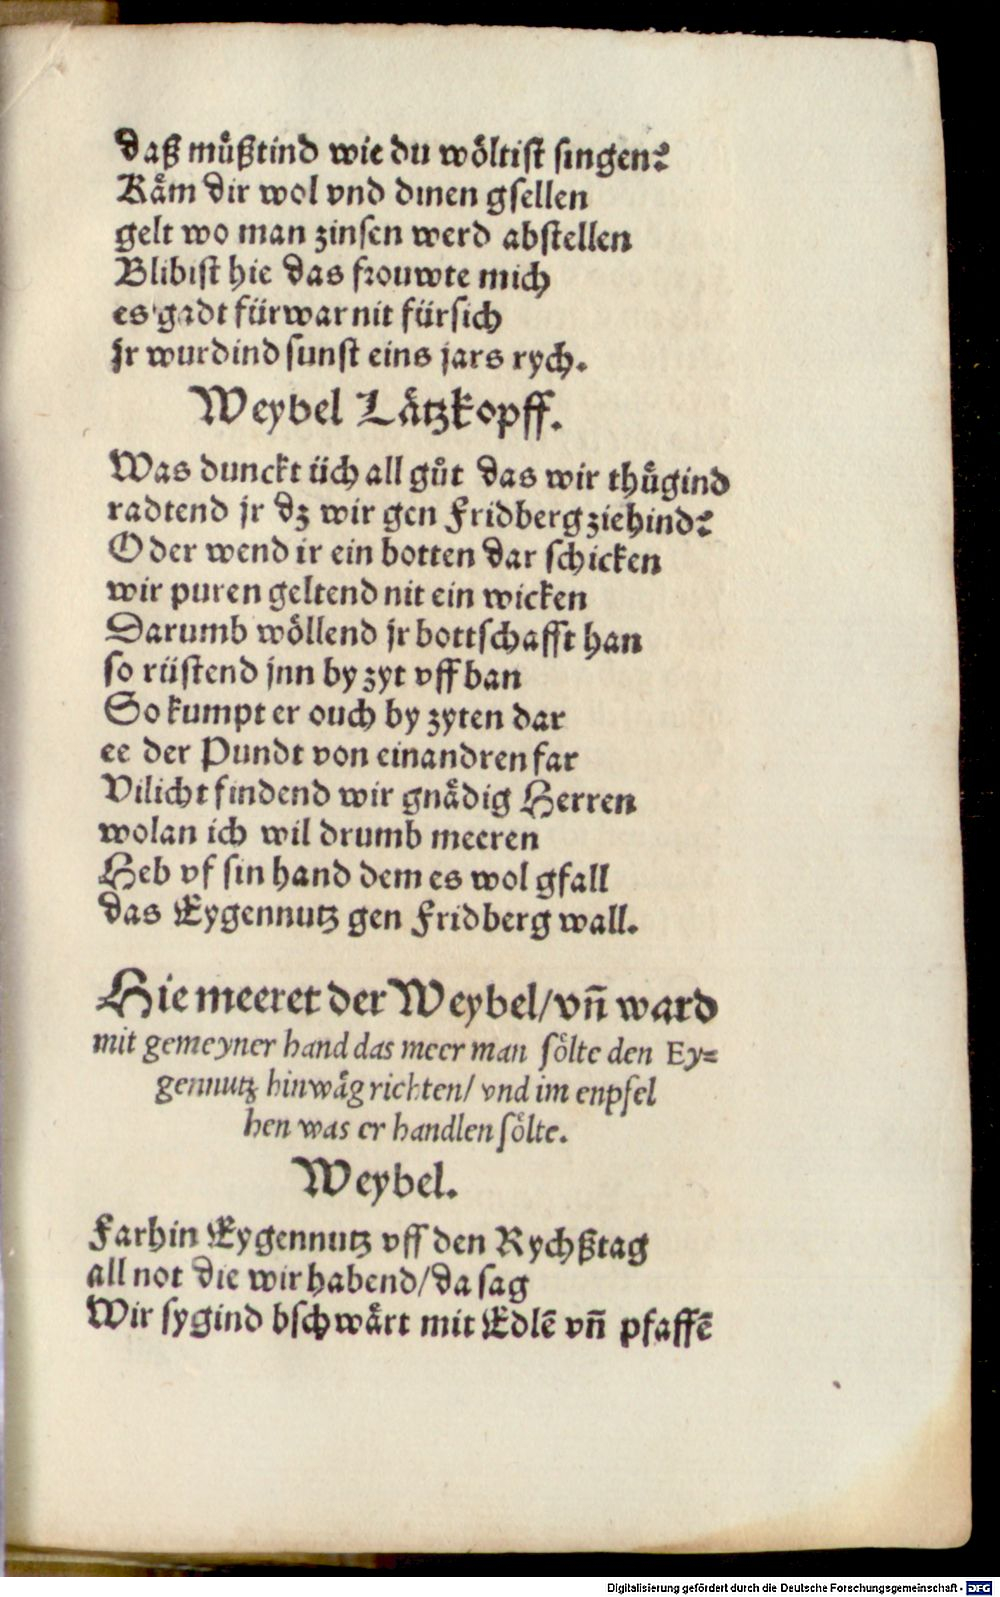 daß muͤßtind wie du woͤltist singen?
Kaͤm dir wol vnd dinen gsellen
gelt wo man zinsen werd abstellen
Blibist hie das frouwte mich
es gadt fürwar nit fürsich
jr wurdind sunst eins jars rych.
Weybel Laͤtzkopff.
Was dunckt üch all guͦt das wir thuͤgind
radtend jr dz wir gen Fridberg ziehind?
Oder wend ir ein botten dar schicken
wir puren geltend nit ein wicken
Darumb woͤllend jr bottschafft han
so rüstend jnn by zyt vff ban
So kumpt er ouch by zyten dar
ee der Pundt von einandren far
Vilicht findend wir gnaͤdig Herren
wolan ich wil drumb meeren
Heb vf sin hand dem es wol gfall
das Eygennutz gen Fridberg wall.
Hie meeret der Weybel/ vñ ward
mit gemeyner hand das meer man soͤlte den Ey=
gennutz hinwaͤg richten/ vnd im enpfel
hen was er handlen soͤlte.
Weybel.
Farhin Eygennutz vff den Rychßtag
all not die wir habend/ da sag
Wir sygind bschwaͤrt mit Edlē vñ pfaffē
Digitalisierung gefördert durch die Deutsche Forschungsgemeinschaft - DFG